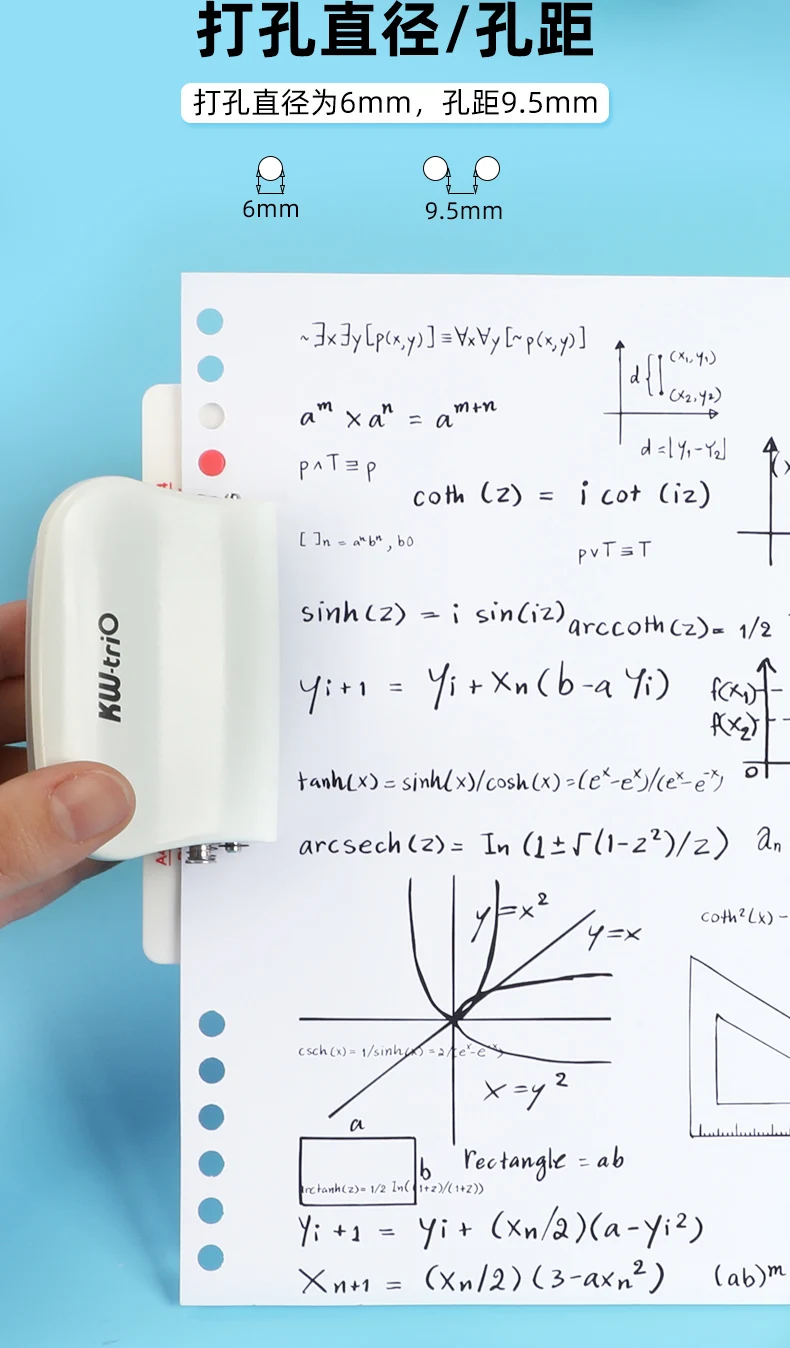 打孔直径/孔距
打孔直径为6mm，孔距9.5mm
6mm
9.5mm
~∃x∃y[p(x,y)]≡∀x∀y[~p(x,y)]
d
(x₁,y₁)
(x₂,y₂)
d=|Y₁-Y₂|
aᵐ × aⁿ = aᵐ⁺ⁿ
p∧T≡p
coth (z) = i cot (iz)
[ ]n = aⁿbⁿ, b0
p∨T≡T
sinh(z) = i sin(iz)
arccoth(z)= 1/2
KW-triO
yi+1 = yi + xn(b-a yi)
f(x₁)
f(x₂)
0
tanh(x)=sinh(x)/cosh(x)=(eˣ-eˣ)/(eˣ-e⁻ˣ)
arcsech(z)= In (1±√(1-z²)/z)
an
y=x²
y=x
coth²(x)-
csch(x)= 1/sinh(x) = 2/(eˣ-e⁻ˣ)
x=y²
a
b
rectangle = ab
arctanh(z)= 1/2 In((1+z)/(1+z))
yi +1 = yi + (xn/2)(a-yi²)
Xn+1 = (xn/2)(3-axn²)
(ab)ᵐ